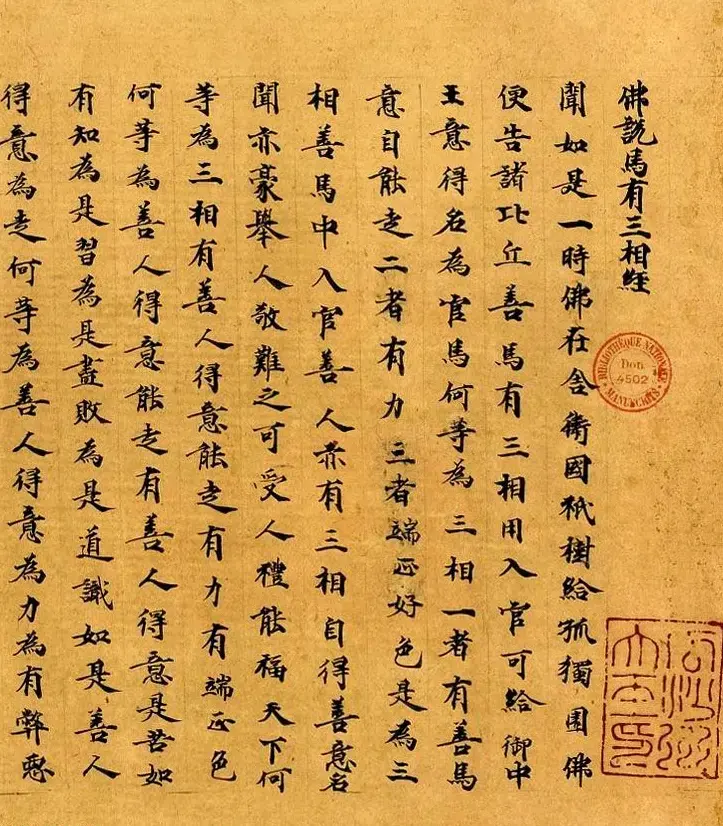 佛說馬有三相經
聞如是一時佛在舍衛國祇樹給孤獨園佛
便告諸比丘善馬有三相用入官可給御中
王意得名為官馬何等為三相一者有善馬
意自能走二者有力三者端正好色是為三
相善馬中入官善人亦有三相自得善意名
聞亦豪舉人敬難之可受人禮能福天下何
等為三相有善人得意能走有力有端正色
何等為善人得意能走有善人得意是苦如
有知為是習為是盡敗為是道識如是善人
得意為走何等為善人得意為力為有弊惡
BIBLIOTHÈQUE NATIONALE
Don
4502
MANUSCRITS
瓜沙州
大王印